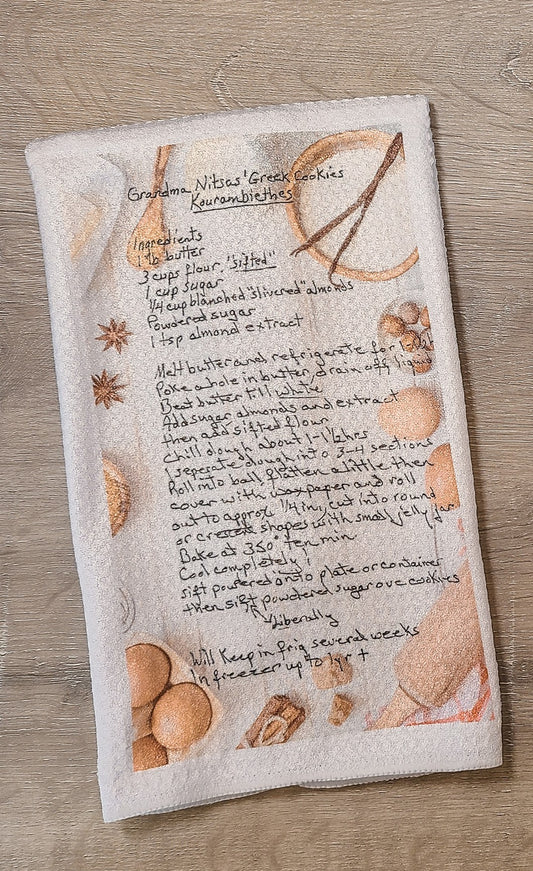 Grandma Nitsas' Greek Cookies
Kourambiethes
Ingredients
1 lb butter
3 cups flour, "sifted"
1 cup sugar
1/4 cup blanched "slivered" almonds
Powdered sugar
1 tsp almond extract
Melt butter and refrigerate for
Poke a hole in butter, drain off liquid
Beat butter till white
Add sugar almonds and extract
then add sifted flour
Chill dough about 1-1 1/2 hrs
1 seperate dough into 3-4 sections
Roll into ball flatten a little then
cover with wax paper and roll
out to approx 1/4 in, cut into round
or crescent shapes with small jelly jar
Bake at 350° ten min
Cool completely;
sift powered onto plate or container
then sift powdered sugar ove cookies
Liberally
Will Keep in frig several weeks
In freezer up to 1yr +